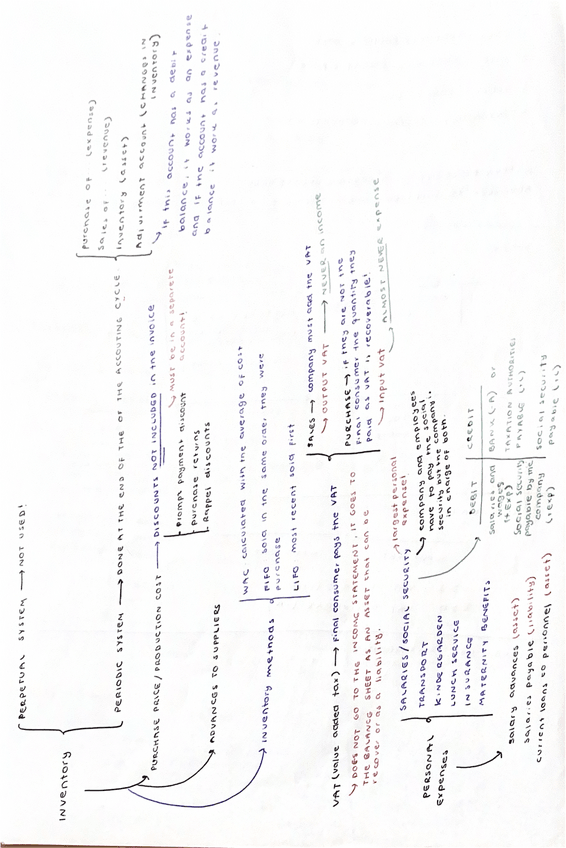 INVENTORY
PERPETUAL SYSTEM → NOT USED!
PERIODIC SYSTEM → DONE AT THE END OF THE OF THE ACCOUTING CYCLE
PURCHASE OF (EXPENSE)
SALES OF .. (REVENUE)
INVENTORY (ASSET)
ADJUSTMENT ACCOUNT (CHANGES IN
INVENTORY)
→ IF THIS ACCOUNT HAS A DEBIT
BALANCE, IT WORKS AS AN EXPENSE
AND IF THE ACCOUNT HAS A CREDIT
BALANCE IT WORK AS REVENUE.
PURCHASE PRICE/PRODUCTION COST → DISCOUNTS NOT INCLUDED IN THE INVOICE
→ MUST BE IN A SEPARETE
ACCOUNT!
. PROMPT PAYMENT DISCOUNT
. PURCHASE RETURNS
. RAPPEL DISCOUNTS
ADVANCES TO SUPPLIERS
INVENTORY METHODS
WAC CALCULATED WITH THE AVERAGE OF COST
FIFO SOLD IN THE SAME ORDER THEY WERE
PURCHASE
LIFO MOST RECENT SOLD FIRST
VAT (VALUE ADDED TAX) → FINAL CONSUMER PAYS THE VAT
→ DOES NOT GO TO THE INCOME STATEMENT, IT GOES TO
THE BALANCE SHEET AS AN ASSET THAT CAN BE
RECOVER OR AS A LIABILITY.
SALES → COMPANY MUST ADD THE VAT
→ OUTPUT VAT → NEVER AN INCOME
PURCHASE → IF THEY ARE NOT THE
FINAL CONSUMER THE QUANTITY THEY
PAID AS VAT IS RECOVERABLE!
→ INPUT VAT → ALMOST NEVER EXPENSE
PERSONAL
EXPENSES
SALARIES/SOCIAL SECURITY
TRANSPORT
KINDERGARDEN
LUNCH SERVICE
INSURANCE
MATERNITY BENEFITS
→ LARGEST PERSONAL
EXPENSE!
COMPANY AND EMPLOYEES
HAVE TO PAY THE SOCIAL
SECURITY BUT THE COMPANY IS
IN CHARGE OF BOTH.
DEBIT
CREDIT
SALARIES AND
WAGES
(+EXP)
SOCIAL SECURITY
PAYABLE BY THE
COMPANY
(+EXP)
BANK (-A) OR
TAXATION AUTHORITIES
PAYABLE (+L)
SOCIAL SECURITY
PAYABLE (+L)
SALARY ADVANCES (ASSET)
SALARIES PAYABLE (LIABILITY)
CURRENT LOANS TO PERSONNEL (ASSET)